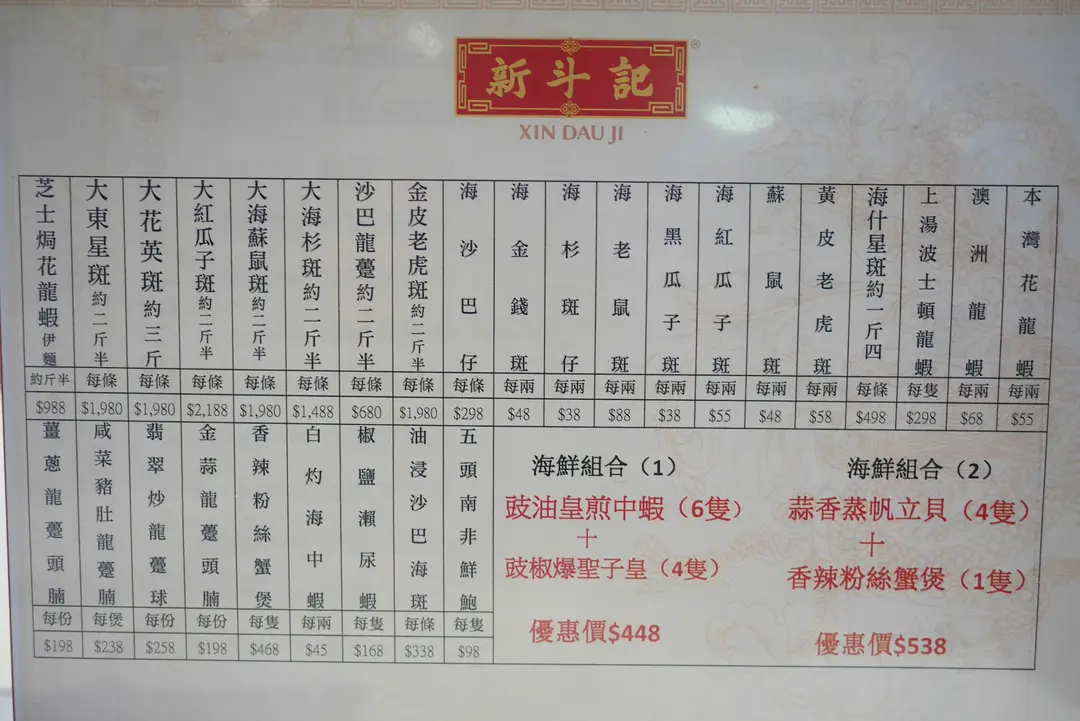 新斗記®
XIN DAU JI
芝士焗花龍蝦伊麵
約斤半
$988
大東星斑約二斤半
每條
$1,980
大花英斑約三斤
每條
$1,980
大紅瓜子斑約二斤半
每條
$2,188
大海蘇鼠斑約二斤半
每條
$1,980
大海杉斑約二斤半
每條
$1,488
沙巴龍躉約二斤半
每條
$680
金皮老虎斑約二斤半
每條
$1,980
海沙巴仔
每條
$298
海金錢斑
每兩
$48
海杉斑仔
每兩
$38
海老鼠斑
每兩
$88
海黑瓜子斑
每兩
$38
海紅瓜子斑
每兩
$55
蘇鼠斑
每兩
$48
黃皮老虎斑
每兩
$58
海什星斑約一斤四
每條
$498
上湯波士頓龍蝦
每隻
$298
澳洲龍蝦
每兩
$68
本灣花龍蝦
每兩
$55
薑蔥龍躉頭腩
每份
$198
咸菜豬肚龍躉腩
每煲
$238
翡翠炒龍躉球
每份
$258
金蒜龍躉頭腩
每份
$198
香辣粉絲蟹煲
每隻
$468
白灼海中蝦
每兩
$45
椒鹽瀨尿蝦
每隻
$168
油浸沙巴海斑
每條
$338
五頭南非鮮鮑
每隻
$98
海鮮組合（1）
豉油皇煎中蝦（6隻）
＋
豉椒爆聖子皇（4隻）
優惠價$448
海鮮組合（2）
蒜香蒸帆立貝（4隻）
＋
香辣粉絲蟹煲（1隻）
優惠價$538